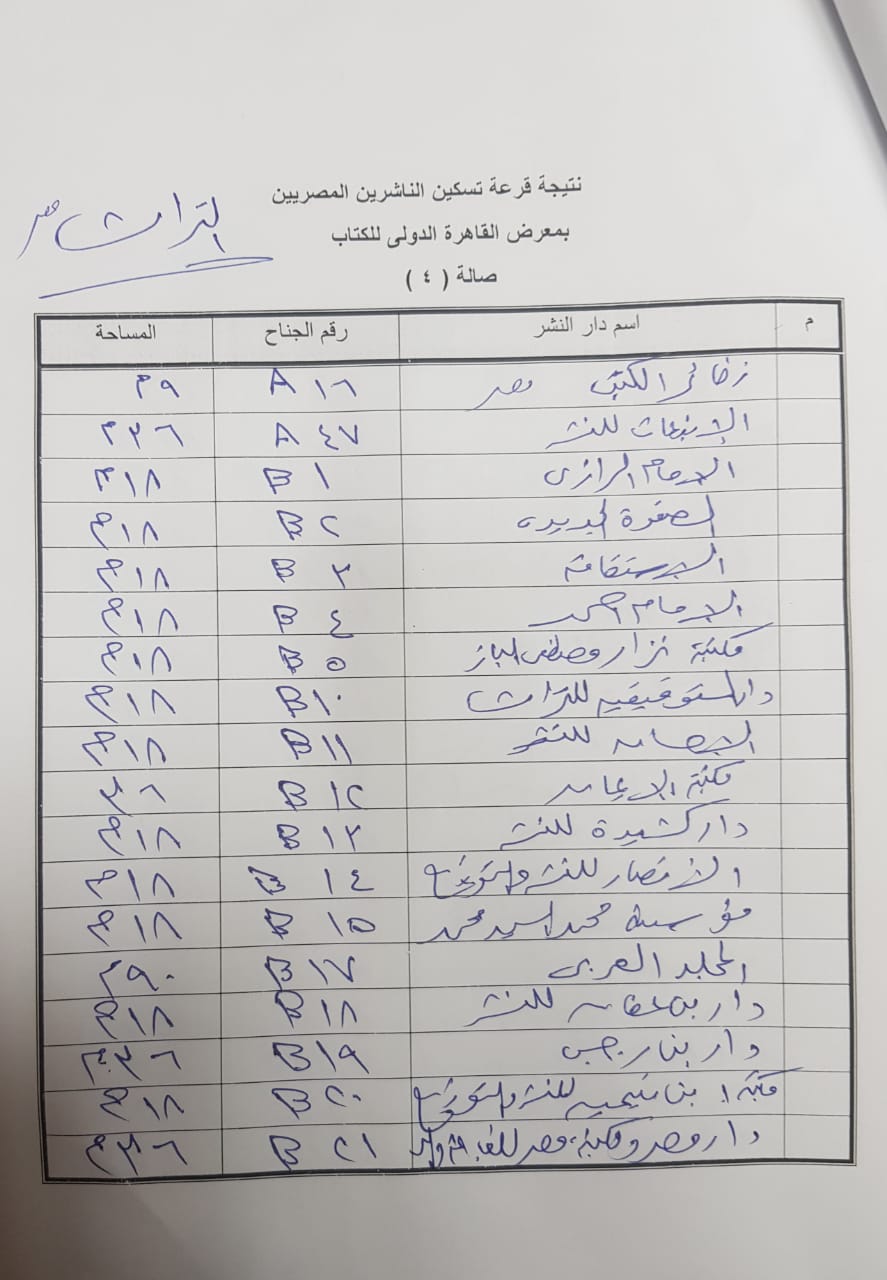 نتيجة قرعة تسكين الناشرين المصريين
بمعرض القاهرة الدولى للكتاب
صالة ( ٤ )
التراث مصر
م اسم دار النشر رقم الجناح المساحة
زخائر الكتب مصر A ١٦ ٩م
للنشر A ٤٧ ٣٦م
الامام الرازى B ١ ١٨م
الصفوة الجديدة B ٢ ١٨م
الاستقامة B ٣ ١٨م
الامام احمد B ٤ ١٨م
مكتبة نزار مصطفى الباز B ٥ ١٨م
دار التوقيفيه للتراث B ١٠ ١٨م
للنشر B ١١ ١٨م
مكتبة B ١٢ ٣٦
دار كشيدة للنشر B ١٣ ١٨م
الانصار للنشر والتوزيع B ١٤ ١٨م
مؤسسة محمد السيد محمد B ١٥ ١٨م
المجلد العربى B ١٧ ٩٠م
دار بن عفان للنشر B ١٨ ١٨م
دار بن رجب B ١٩ ٣٦م
مكتبة ابن تيميه للنشر والتوزيع B ٢٠ ١٨م
دار مصر ومكتبة مصر B ٢١ ٣٦م